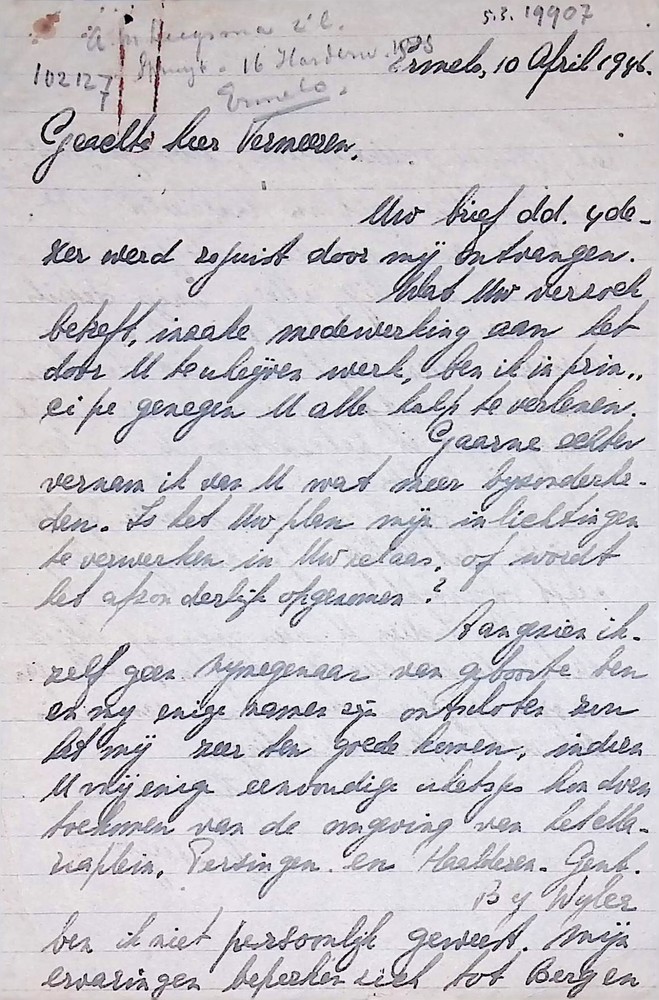 5.3. 19907
102127
Ermelo.
Ermelo, 10 April 1946.
Geachte heer Vermeeren,
Uw brief dd. gde-
zer werd zojuist door mij ontvangen.
Wat Uw verzoek
betreft, inzake medewerking aan het
door U te schrijven werk, ben ik in prin-
cipe genegen U alle hulp te verlenen.
Gaarne echter
vernam ik van U wat meer byzonderhe-
den. Is het Uw plan mijn inlichtingen
te verwerken in Uw relaas, of wordt
het afzonderlijk opgenomen?
Aangezien ik
zelf geen Nymegenaar van geboorte ben
en my enige namen zyn ontschoten zou
het mij zeer ten goede komen, indien
U mij enige eenvoudige schetsjes kon doen
toekomen van de omgeving van het
Persingen en Haalderen. Gent.
By Wyler
ben ik niet persoonlijk geweest. Mijn
ervaringen beperken zich tot Berg en